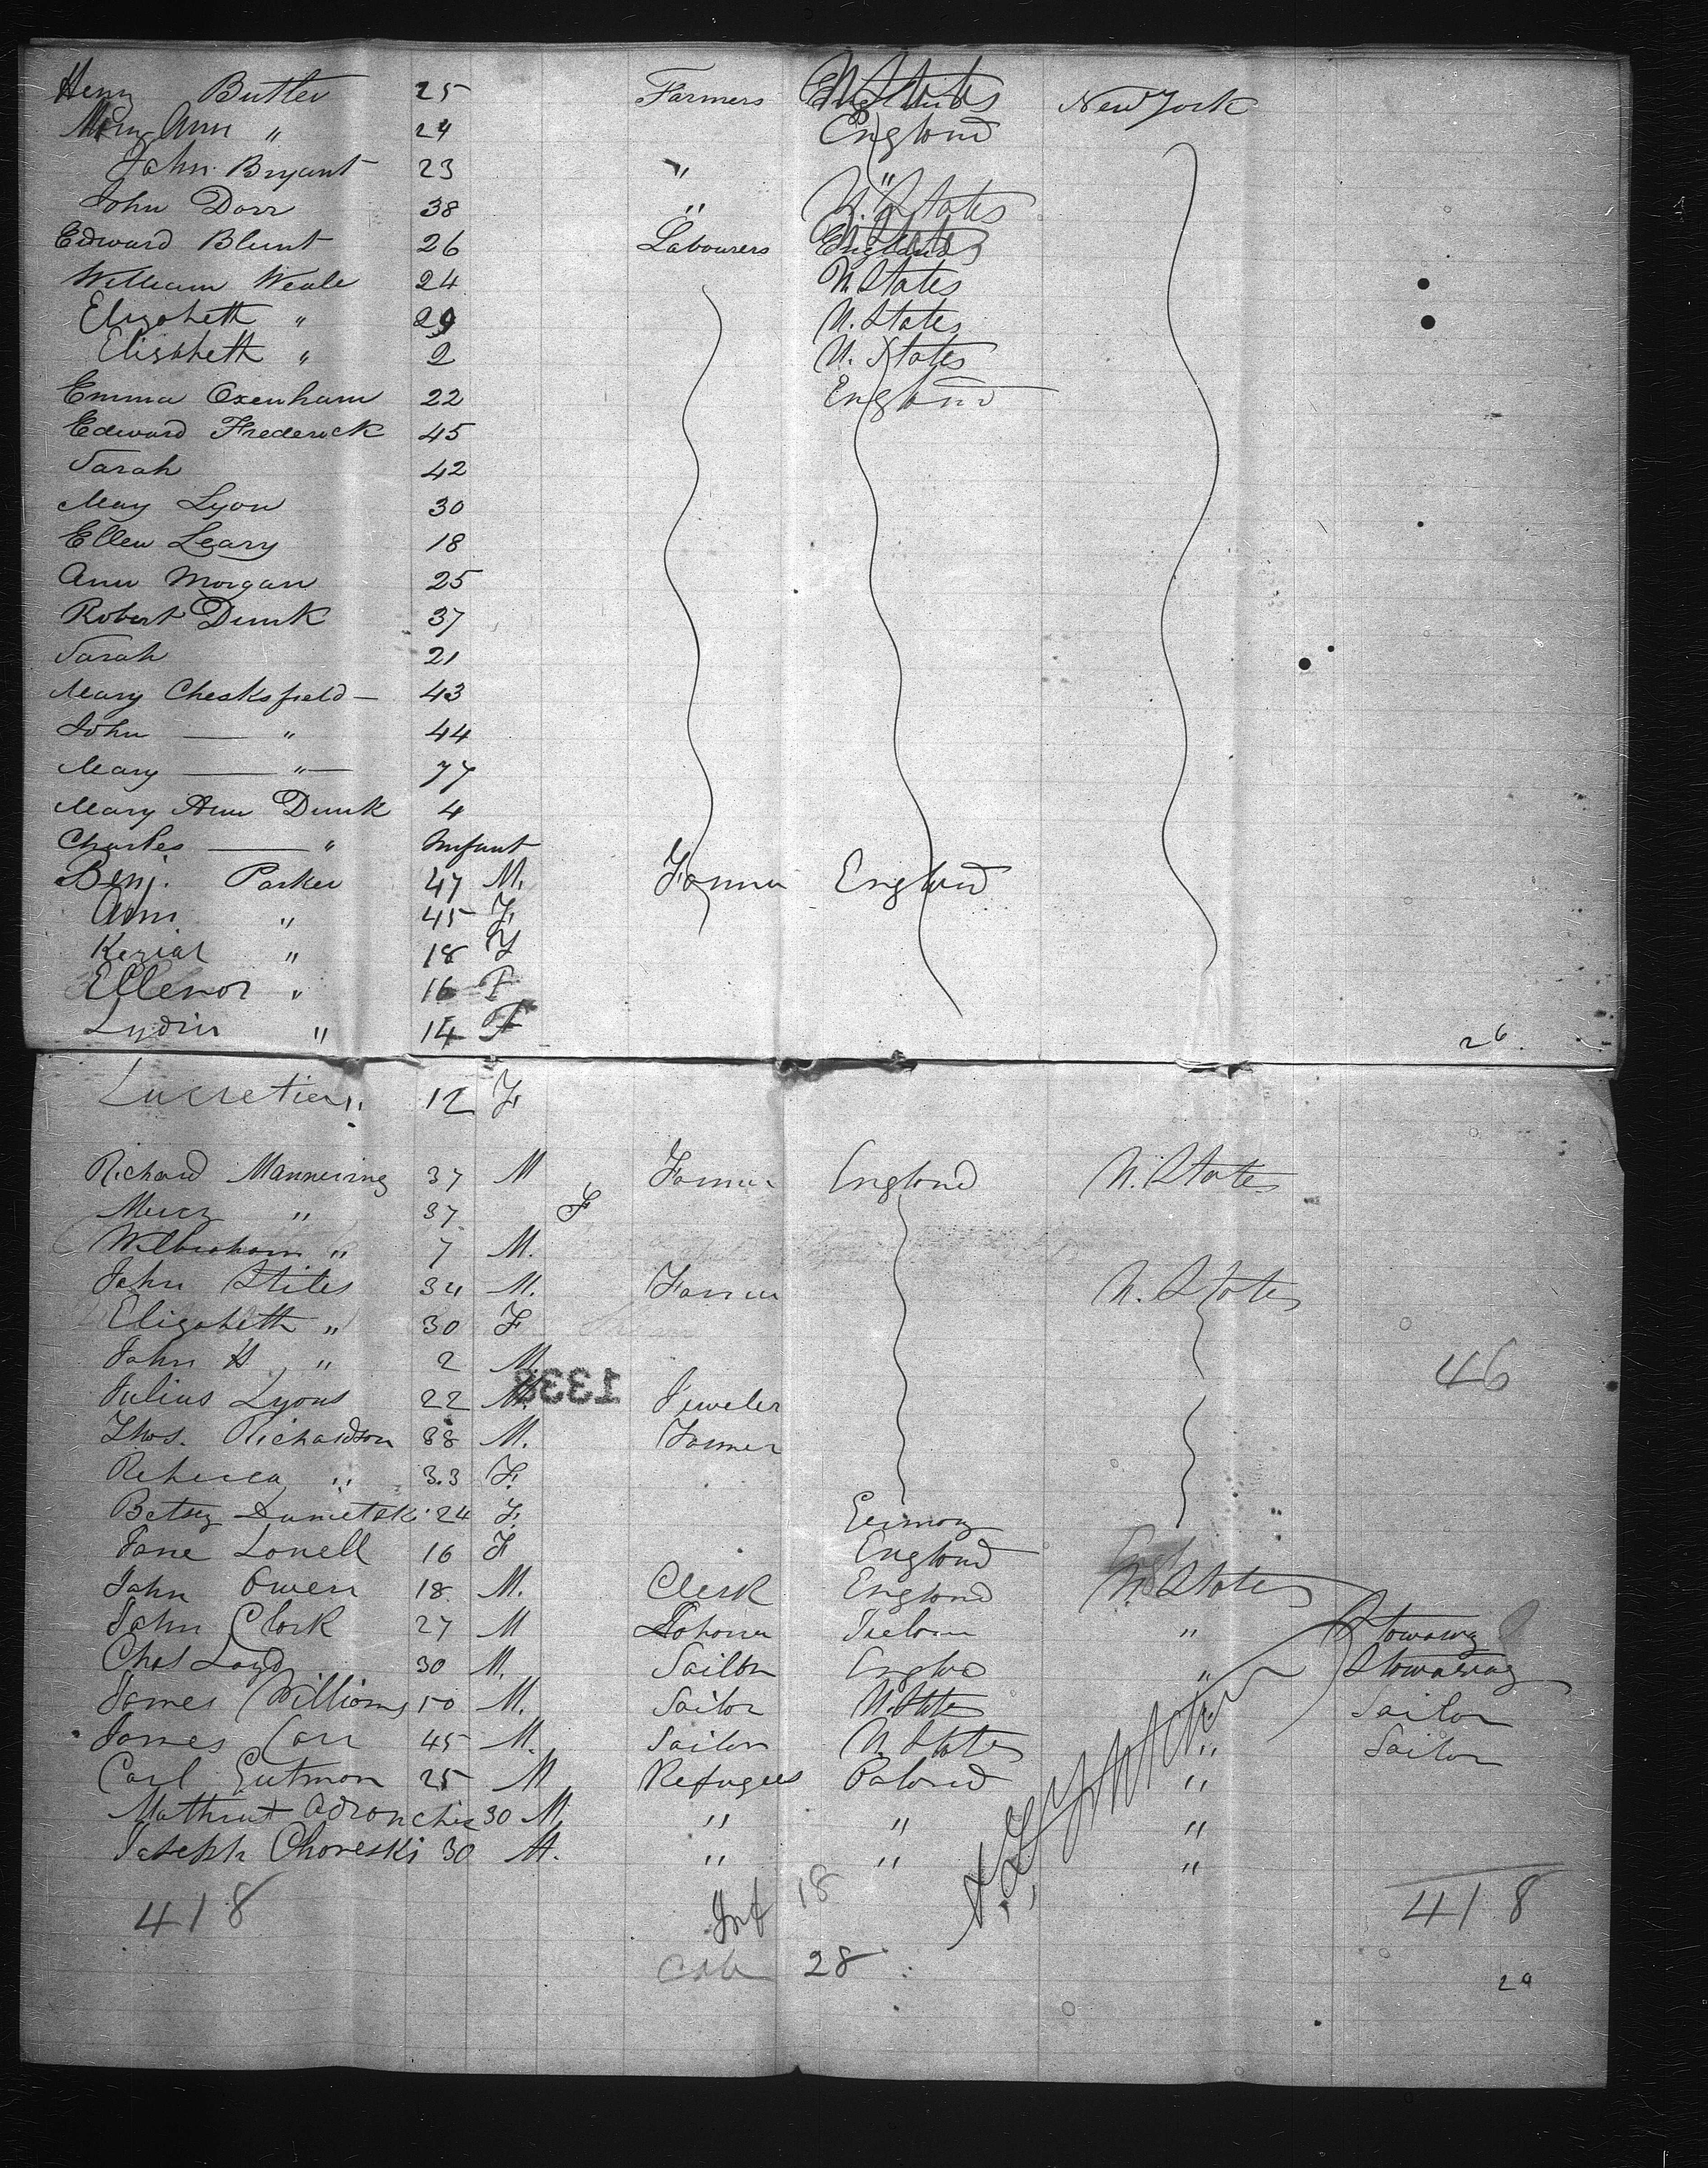 Henry Butler 25 Farmers U. States New York
Mary Ann " 24 England
John Bryant 23 " "
John Dorr 38 " U. States
Edward Blunt 26 Labourers England
William Weale 24 U. States
Elizabeth " 29 U. States
Elizabeth " 2 U. States
Emma Oxenham 22 England
Edward Frederick 45
Sarah 42
Mary Lyon 30
Ellen Leary 18
Ann Morgan 25
Robert Dunk 37
Sarah 21
Mary Cheeksfield — 43
John — " 44
Mary — " — 77
Mary Ann Dunk 4
Charles — " Infant
Benj. Parker 47 M. Farmer England
Ann " 45 F
Keziah " 18 F
Ellenor " 16 F
Lydia " 14 F
26.
Lucretia " 12 F
Richard Mannering 37 M Farmer England U. States
Mercy " 37 F
" 7 M.
John Stiles 34 M. Farmer U. States
Elizabeth " 30 F
John H " 2 M.
46
Julius Lyons 22 M. 1338 Jeweler
Thos. Richardson 38 M. Farmer
Rebecca " 33 F.
Betsy 24 F. Germany
Jane Lovell 16 F England
John Owen 18 M. Clerk England U. States
John Clark 27 M " Stoway
Chas Loyd 30 M. Sailor England " Stowaway
James Williams 50 M. Sailor U. States Sailor
James Carr 45 M. Sailor U. States " Sailor
Carl Gutman 25 M Refugees Poland "
30 M. " " "
Joseph Choreski 30 M. " " "
418 Inf 18 418
Cab 28
29